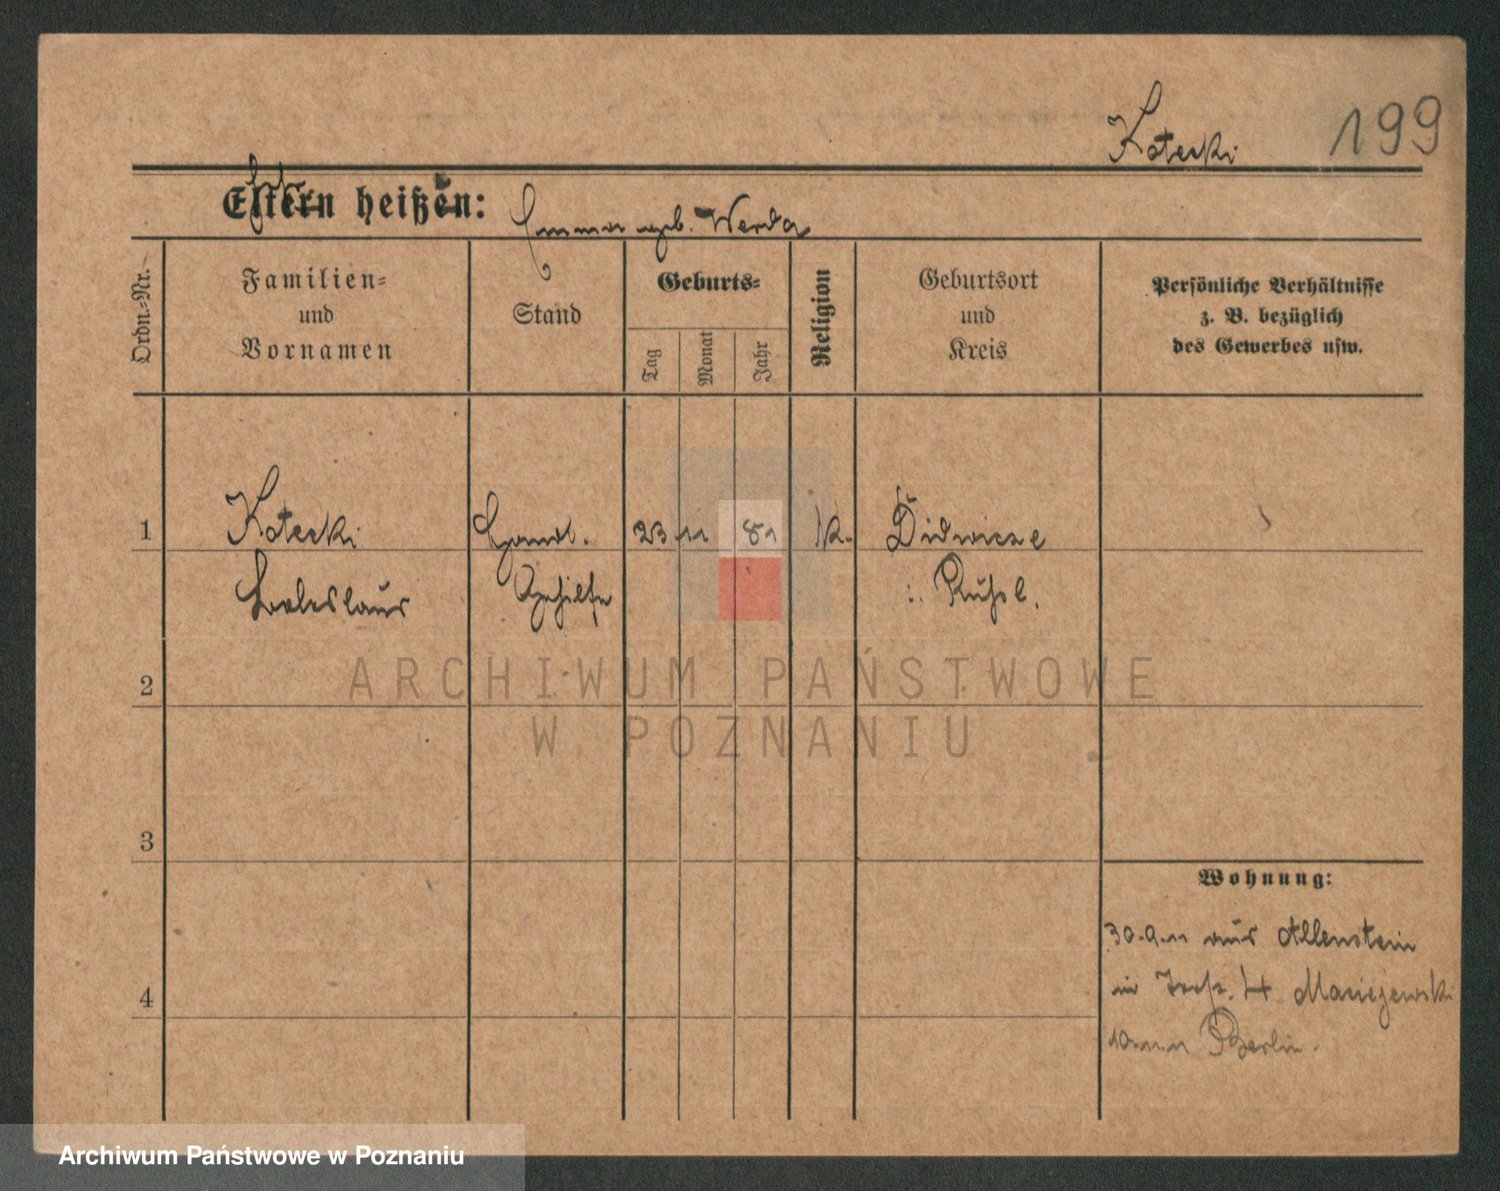 Kotecki 199
Eltern heißen:
Emma geb. Werda
Ordn.-Nr.
Familien-
und
Vornamen
Stand
Geburts-
Tag
Monat
Jahr
Religion
Geburtsort
und
Kreis
Persönliche Verhältnisse
z. B. bezüglich
des Gewerbes usw.
1 Kotecki Handl. 23 11 81 k.
Boleslaus Gehilfe
2
ARCHIWUM PAŃSTWOWE
W POZNANIU
3
Wohnung:
30.9.11 aus Allenstein
4
Maciejewski
10.11.11 Berlin.
Archiwum Państwowe w Poznaniu